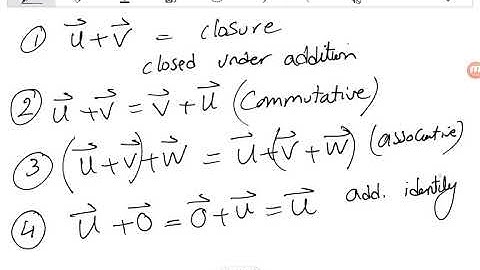 ① u⃗ + v⃗ = closure
closed under addition
② u⃗ + v⃗ = v⃗ + u⃗ (Commutative)
③ (u⃗ + v⃗) + w⃗ = u⃗ + (v⃗ + w⃗) (associative)
④ u⃗ + 0⃗ = 0⃗ + u⃗ = u⃗ add. identity